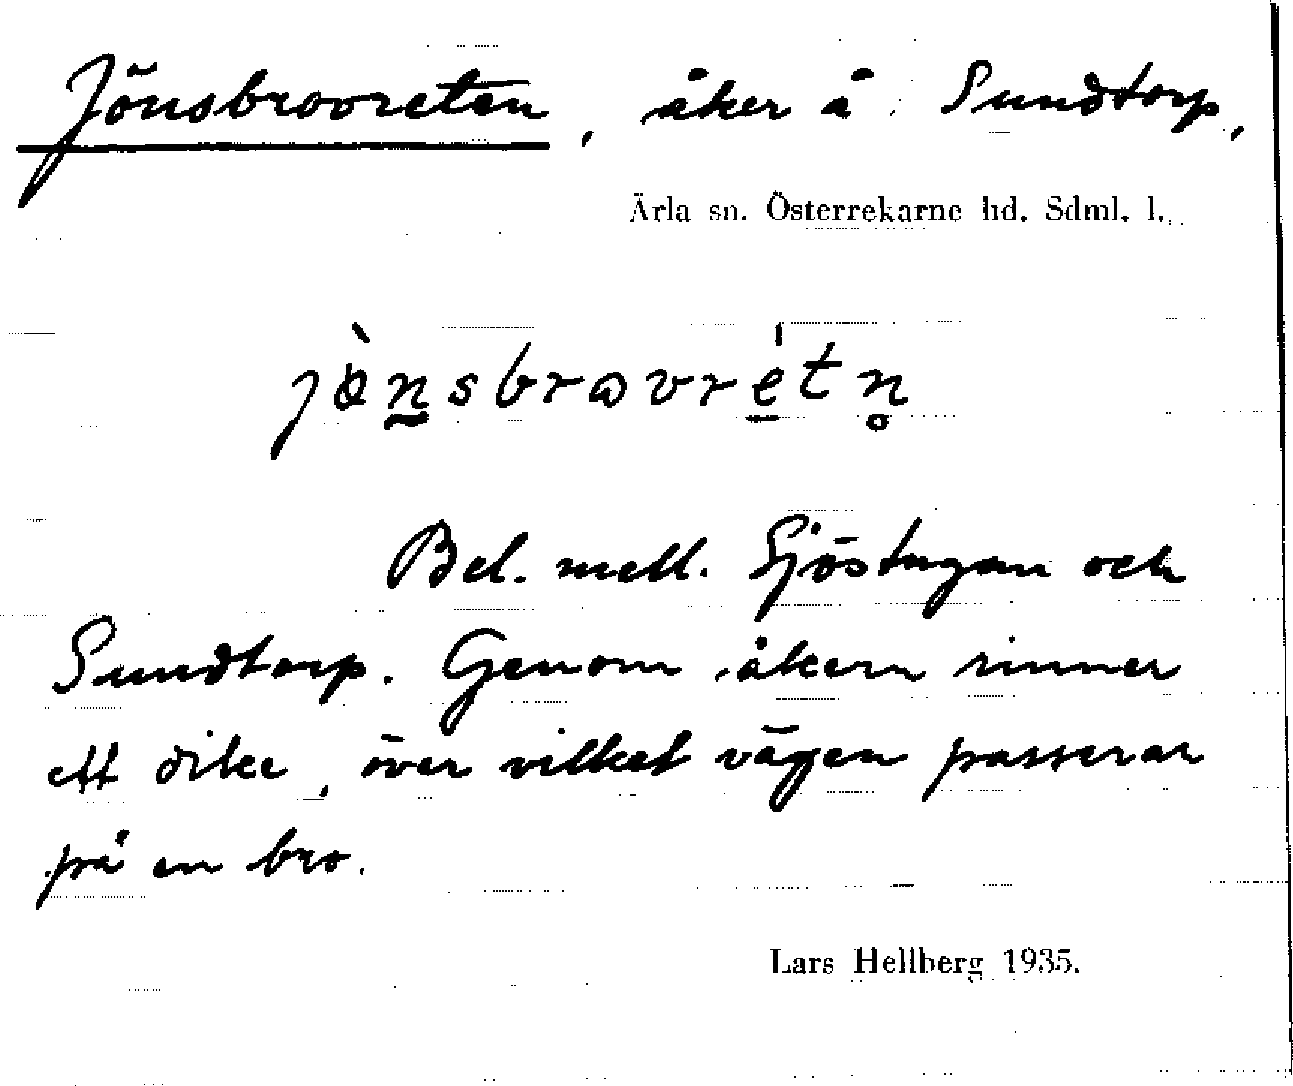 Jönsbrovreten, åker å Sundtorp,
Ärla sn. Österrekarne hd. Sdml. l.
jö̀nsbrovrétn̥
Bel. mell. Sjöstugan och
Sundtorp. Genom åkern rinner
ett dike, över vilket vägen passerar
på en bro.
Lars Hellberg 1935.